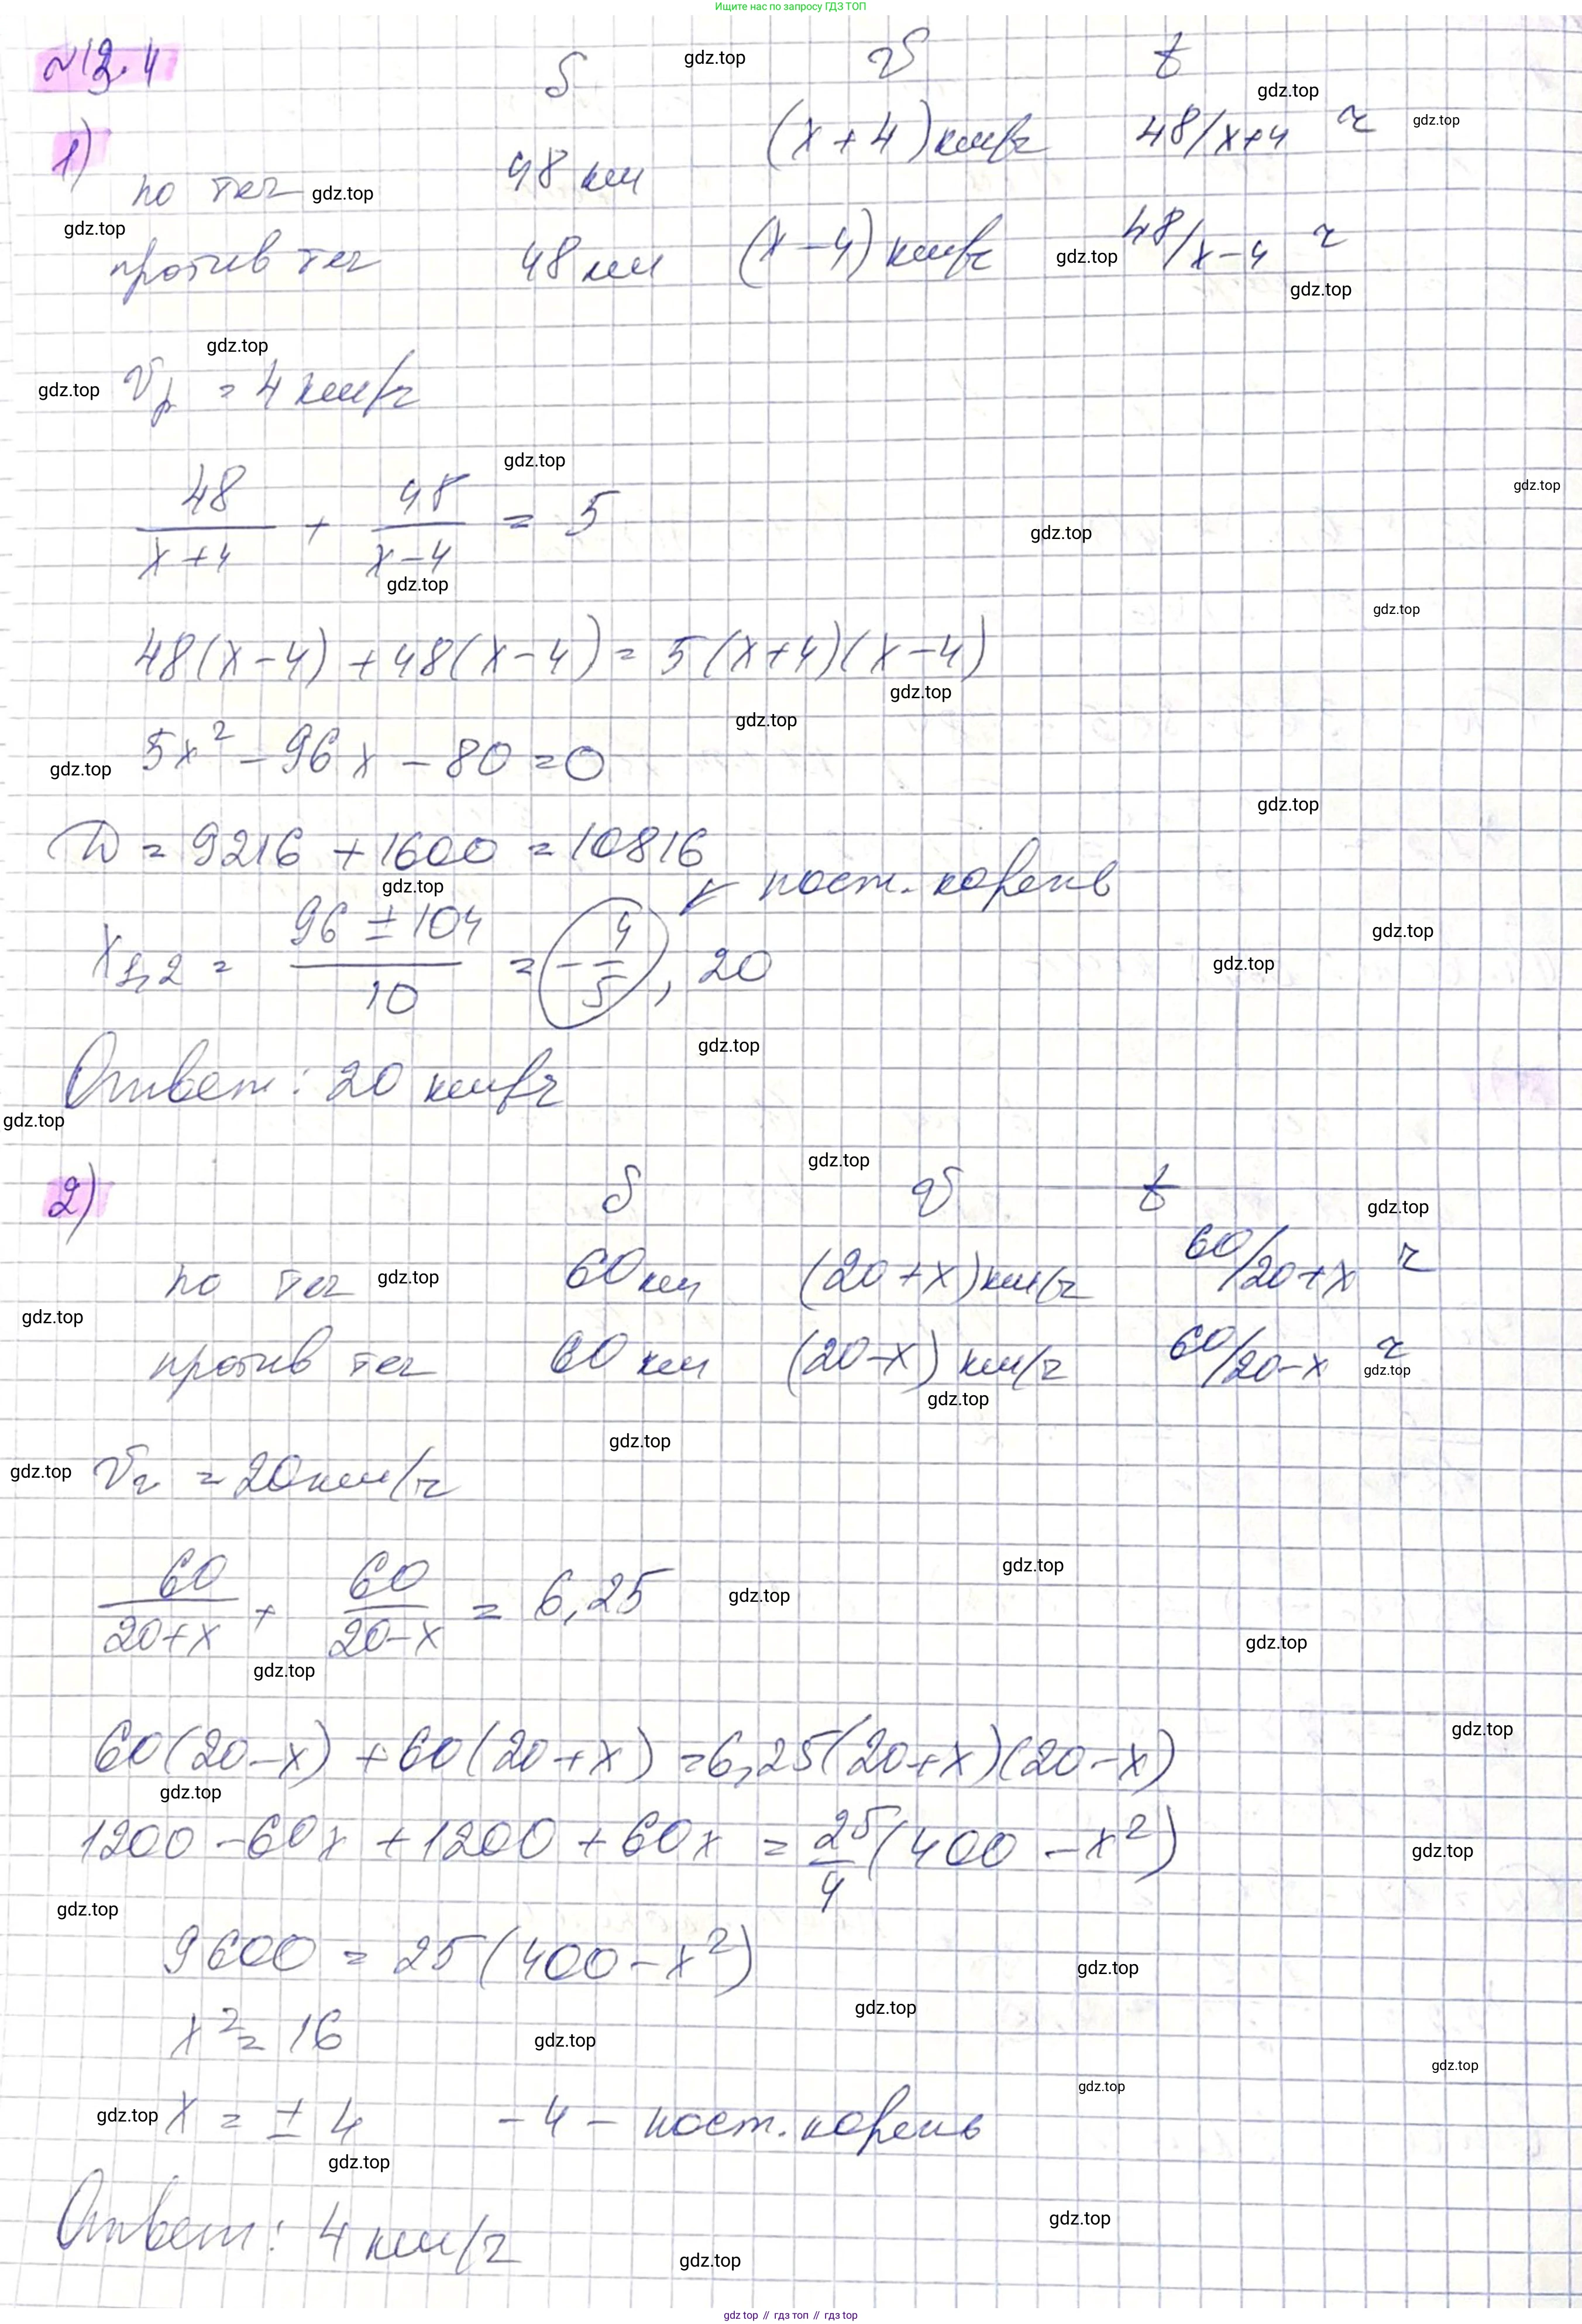 Ищите нас по запросу ГДЗ ТОП
№12.4
S v t
1)
по теч 48 км (x+4) км/ч 48/x+4 ч
против теч 48 км (x-4) км/ч 48/x-4 ч
Vр = 4 км/ч
48/(x+4) + 48/(x-4) = 5
48(x-4)+48(x-4)=5(x+4)(x-4)
5x² - 96x - 80 = 0
D = 9216 + 1600 = 10816
x1,2 = (96 ± 104)/10 = -4/5, 20 ↙ пост. корень
Ответ: 20 км/ч
2) S v t
по теч 60 км (20+x) км/ч 60/20+x ч
против теч 60 км (20-x) км/ч 60/20-x ч
= 20 км/ч
60/(20+x) + 60/(20-x) = 6,25
60(20-x)+60(20+x)=6,25(20+x)(20-x)
1200-60x+1200+60x = 25/4(400-x²)
9600 = 25(400-x²)
x² = 16
x = ± 4 -4 - пост. корень
Ответ: 4 км/ч
gdz.top // гдз топ // гдз top